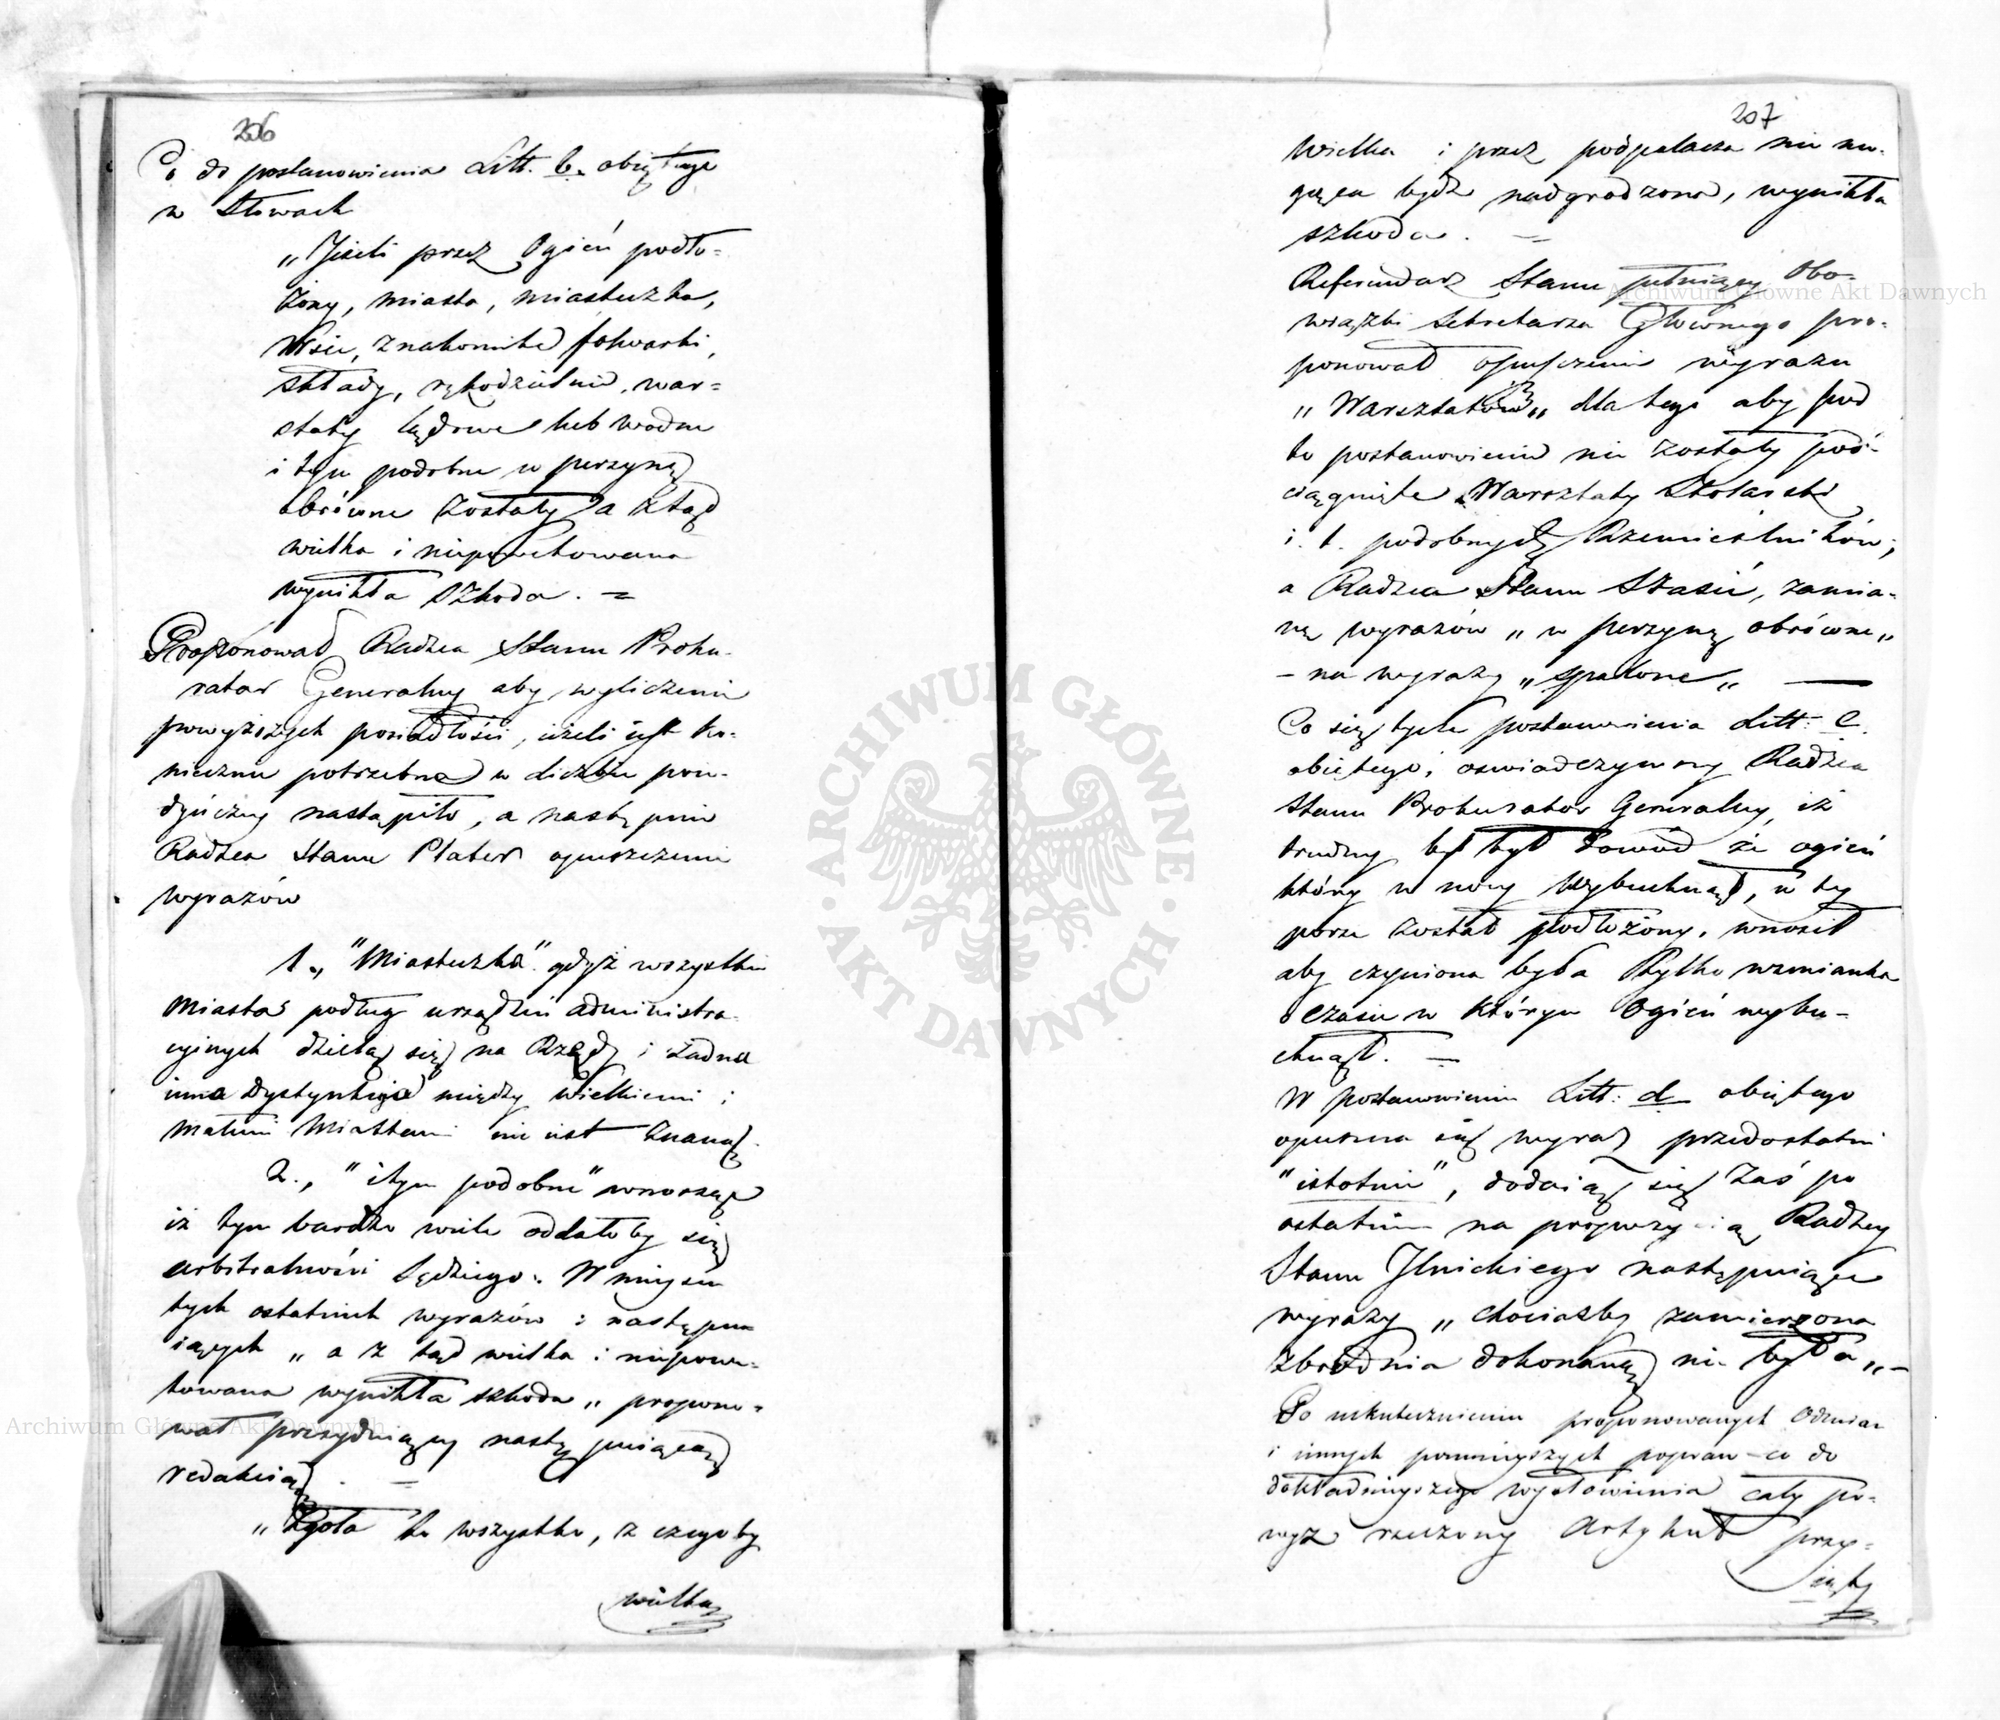 206
Co do postanowienia Litt. b. obiętego
w Słowach
„Jeżeli przez Ogień podło-
żony, miasta, miasteczka,
Wsie, znakomite folwarki,
składy, rękodzielnie, war-
staty lądowe lub wodne
i tym podobne w perzynę
obrócone zostały a ztąd
wielka i niepowetowana
wynikła szkoda. =
Proponował Radzca Stanu Proku-
rator Generalny aby wyliczenie
powyższych posiadłości, ieżeli iest ko-
niecznie potrzebne w liczbie poie-
dyńczey nastąpiło, a następnie
Radzca Stanu Plater opuszczenie
wyrazów
1., "Miasteczka" gdyż wszystkie
Miasta podług urządzeń administra-
cyinych dzielą się na Rzędy i żadna
inna dystynkcya między wielkiemi i
małemi Miastami nie iest znaną.
2., "i tym podobne" wnosząc
iż tym bardzo wiele oddałoby się
arbitralności Sędziego. W mieysce
tych ostatnich wyrazów i następu-
iących „a z tąd wielka i niepowe-
towana wynikła szkoda„ propono-
wał prezyduiący następuiącą
redakcią. =
„Zgoła to wszystko, z czegoby
wielka
207
wielka i przez podpalacza nie mo-
gąca bydź nadgrodzona, wynikła
szkoda. =
Referendarz Stanu pełniący Obo-
wiązki Sekretarza Głównego pro-
ponował opuszczenie wyrazu
„Warsztatów„ dla tego aby pod
to postanowienie nie zostały pod-
ciągnięte Warsztaty Stolarskie
i. t. podobnych Rzemieślników;
a Radzca Stanu Staszic, zamia-
nę wyrazów „w perzynę obrócone„
– na wyrazy „spalone„ —
Co się tycze postanowienia Litt: c.
obiętego, oświadczywszy Radzca
Stanu Prokurator Generalny, iż
trudny był dowód że ogień
który w nocy wybuchnął, w tey
porze został podłożony, wnosił
aby czyniona była tylko wzmianka
o czasie w którym Ogień wybu-
chnął. =
W postanowieniu Litt: d obiętego
opuszcza się wyraz przedostatni
"istotnie", dodaią się zaś po
ostatnim na propozycią Radzcy
Stanu Ilnickiego następuiące
wyrazy „chociażby zamierzona
zbrodnia dokonaną nie była„–
Po uskutecznieniu proponowanych Odmian
i innych pomnieyszych popraw – co do
dokładnieyszego wysłowienia cały po-
wyż rzeczony Artykuł przy-
ięty
Archiwum Główne Akt Dawnych
ARCHIWUM GŁÓWNE · AKT DAWNYCH ·
Archiwum Główne Akt Dawnych